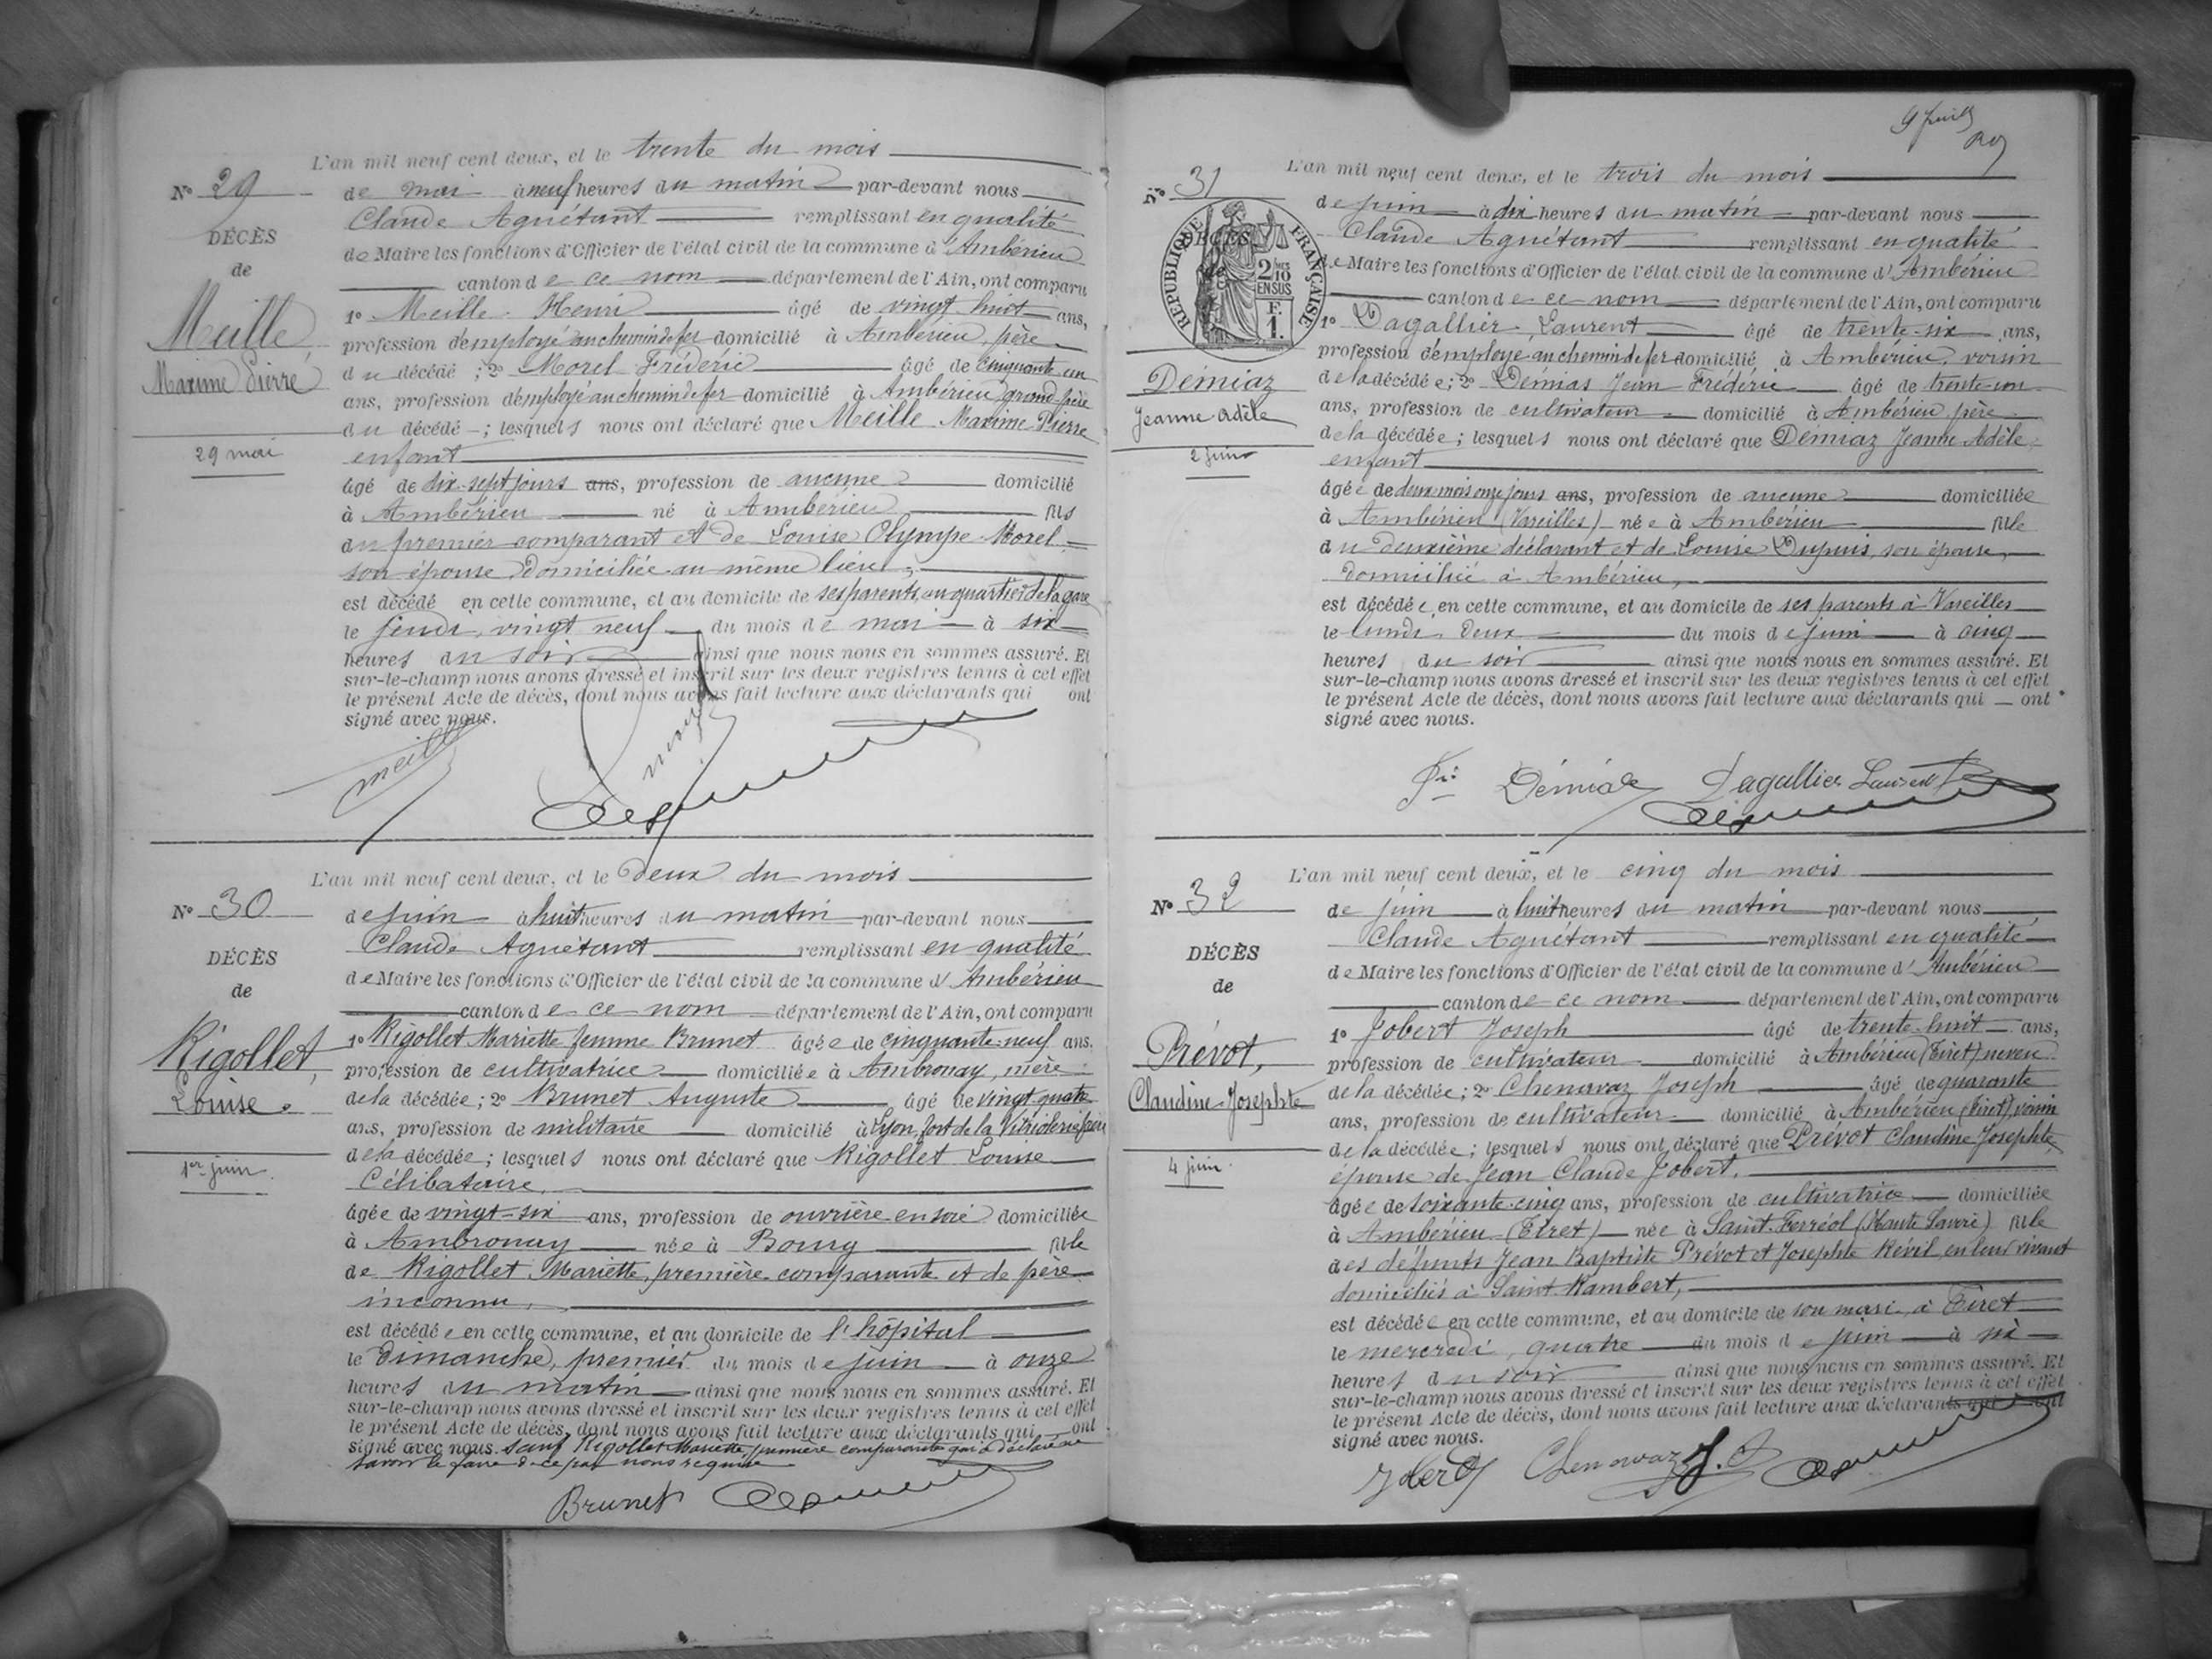 L'an mil neuf cent deux, et le trente du mois
N° 29
de mai à neuf heures du matin par-devant nous
Claude Aguétant remplissant en qualité
DÉCÈS
de Maire les fonctions d'Officier de l'état civil de la commune d'Ambérieu
de
canton de ce nom département de l'Ain, ont comparu
Meille
1° Meille Henri âgé de vingt huit ans,
profession d'employé au chemin de fer domicilié à Ambérieu, père
Maxime Pierre
du décédé ; 2° Morel Fréderic âgé de cinquante un
ans, profession d'employé au chemin de fer domicilié à Ambérieu, grand-père
du décédé ; lesquels nous ont déclaré que Meille Maxime Pierre
29 mai
enfant
âgé de dix-sept jours ans, profession de aucune domicilié
à Ambérieu né à Ambérieu fils
du premier comparant et de Louise Olympe Morel
son épouse domiciliée au même lieu,
est décédé en cette commune, et au domicile de ses parents, au quartier de la gare
le jeudi, vingt neuf du mois de mai à six
heures du soir ainsi que nous nous en sommes assuré. Et
sur-le-champ nous avons dressé et inscrit sur les deux registres tenus à cet effet
le présent Acte de décès, dont nous avons fait lecture aux déclarants qui ont
signé avec nous.
Meille
L'an mil neuf cent deux, et le deux du mois
N° 30
de juin à huit heures du matin par-devant nous
Claude Aguétant remplissant en qualité
DÉCÈS
de Maire les fonctions d'Officier de l'état civil de la commune d'Ambérieu
de
canton de ce nom département de l'Ain, ont comparu
Rigollet,
1° Rigollet Mariette femme Brunet âgée de cinquante-neuf ans,
profession de cultivatrice domiciliée à Ambronay, mère
Louise.
de la décédée ; 2° Brunet Auguste âgé de vingt quatre
ans, profession de militaire domicilié à Lyon, fort de la Vitriolerie frère
de la décédée ; lesquels nous ont déclaré que Rigollet Louise
1er juin.
Célibataire,
âgée de vingt-six ans, profession de ouvrière en soie domiciliée
à Ambronay née à Bourg fille
de Rigollet Mariette, première comparante et de père
inconnu,
est décédée en cette commune, et au domicile de l'hôpital
le dimanche, premier du mois de juin à onze
heures du matin ainsi que nous nous en sommes assuré. Et
sur-le-champ nous avons dressé et inscrit sur les deux registres tenus à cet effet
le présent Acte de décès, dont nous avons fait lecture aux déclarants qui ont
signé avec nous. sauf Rigollet Mariette, première comparante qui a déclaré ne
savoir le faire de ce par nous requise
Brunet
9 juill
L'an mil neuf cent deux, et le trois du mois
N° 31
de juin à dix heures du matin par-devant nous
Claude Aguétant remplissant en qualité
DÉCÈS
de
RÉPUBLIQUE FRANÇAISE
2/10 EN SUS
F. 1.
de Maire les fonctions d'Officier de l'état civil de la commune d'Ambérieu
canton de ce nom département de l'Ain, ont comparu
1° Dagallier Laurent âgé de trente-six ans,
profession d'employé au chemin de fer domicilié à Ambérieu, voisin
Démiaz
de la décédée ; 2° Démias Jean Fréderic âgé de trente-un
ans, profession de cultivateur domicilié à Ambérieu, père
Jeanne Adèle
de la décédée ; lesquels nous ont déclaré que Démiaz Jeanne Adèle,
2 juin
enfant
âgée de deux mois onze jours ans, profession de aucune domiciliée
à Ambérieu (Vareilles) née à Ambérieu fille
du deuxième déclarant et de Louise Dupuis, son épouse,
domiciliée à Ambérieu,
est décédée en cette commune, et au domicile de ses parents à Vareilles
le lundi deux du mois de juin à cinq
heures du soir ainsi que nous nous en sommes assuré. Et
sur-le-champ nous avons dressé et inscrit sur les deux registres tenus à cet effet
le présent Acte de décès, dont nous avons fait lecture aux déclarants qui ont
signé avec nous.
Démiaz Dagallier Laurent
L'an mil neuf cent deux, et le cinq du mois
N° 32
de juin à huit heures du matin par-devant nous
Claude Aguétant remplissant en qualité
DÉCÈS
de Maire les fonctions d'Officier de l'état civil de la commune d'Ambérieu
de
canton de ce nom département de l'Ain, ont comparu
Prévot,
1° Jobert Joseph âgé de trente-huit ans,
profession de cultivateur domicilié à Ambérieu (Tiret) neveu
Claudine-Josephte
de la décédée ; 2° Chenavaz Joseph âgé de quarante
ans, profession de cultivateur domicilié à Ambérieu (Tiret), voisin
de la décédée ; lesquels nous ont déclaré que Prévot Claudine Josephte,
4 juin.
épouse de Jean Claude Jobert,
âgée de soixante-cinq ans, profession de cultivatrice domiciliée
à Ambérieu (Tiret) née à Saint-Ferréol (Haute Savoie) fille
des défunts Jean Baptiste Prévot et Josephte Révil, en leur vivant
domiciliés à Saint Rambert,
est décédée en cette commune, et au domicile de son mari, à Tiret
le mercredi, quatre du mois de juin à six
heures du soir ainsi que nous nous en sommes assuré. Et
sur-le-champ nous avons dressé et inscrit sur les deux registres tenus à cet effet
le présent Acte de décès, dont nous avons fait lecture aux déclarants qui ont
signé avec nous.
Jobert J Chenavaz J.